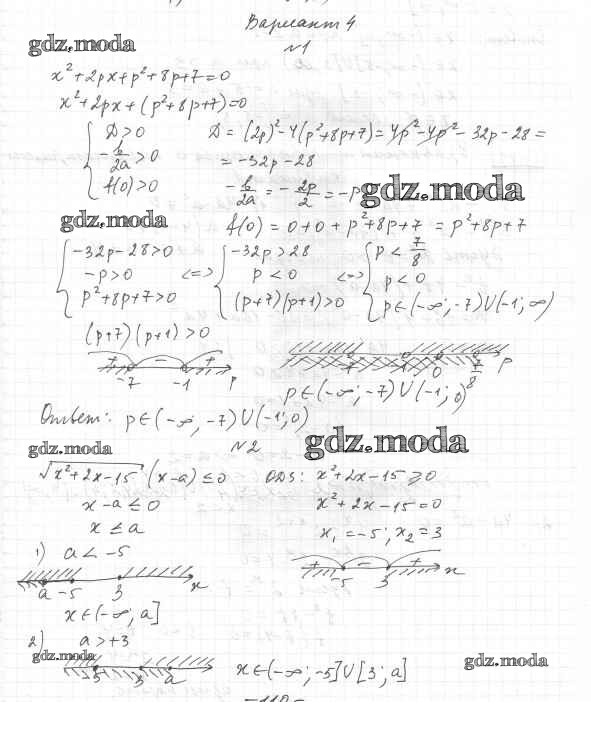 Вариант 4
gdz.moda
№1
x² + 2px + p² + 8p + 7 = 0
x² + 2px + (p² + 8p + 7) = 0
D > 0
D = (2p)² - 4(p² + 8p + 7) = 4p² - 4p² - 32p - 28 =
-b/2a > 0
= -32p - 28
f(0) > 0
-b/2a = -2p/2 = -p
gdz.moda
gdz.moda
f(0) = 0 + 0 + p² + 8p + 7 = p² + 8p + 7
-32p - 28 > 0
-p > 0
p² + 8p + 7 > 0
<=>
-32p > 28
p < 0
(p+7)(p+1) > 0
<=>
p < 7/8
p < 0
p ∈ (-∞; -7) U (-1; ∞)
(p+7)(p+1) > 0
+ - +
-7 -1 p
-7 -1 0 7/8 p
p ∈ (-∞; -7) U (-1; 0)
Ответ: p ∈ (-∞, -7) U (-1; 0)
gdz.moda
№2
gdz.moda
√(x² + 2x - 15) (x - a) ≤ 0
ОДЗ: x² + 2x - 15 ≥ 0
x - a ≤ 0
x² + 2x - 15 = 0
x ≤ a
x₁ = -5; x₂ = 3
1) a < -5
+ - +
-5 3 x
a -5 3 x
x ∈ (-∞, a]
2) a > +3
gdz.moda
3 a
x ∈ (-∞; -5] U [3; a]
gdz.moda